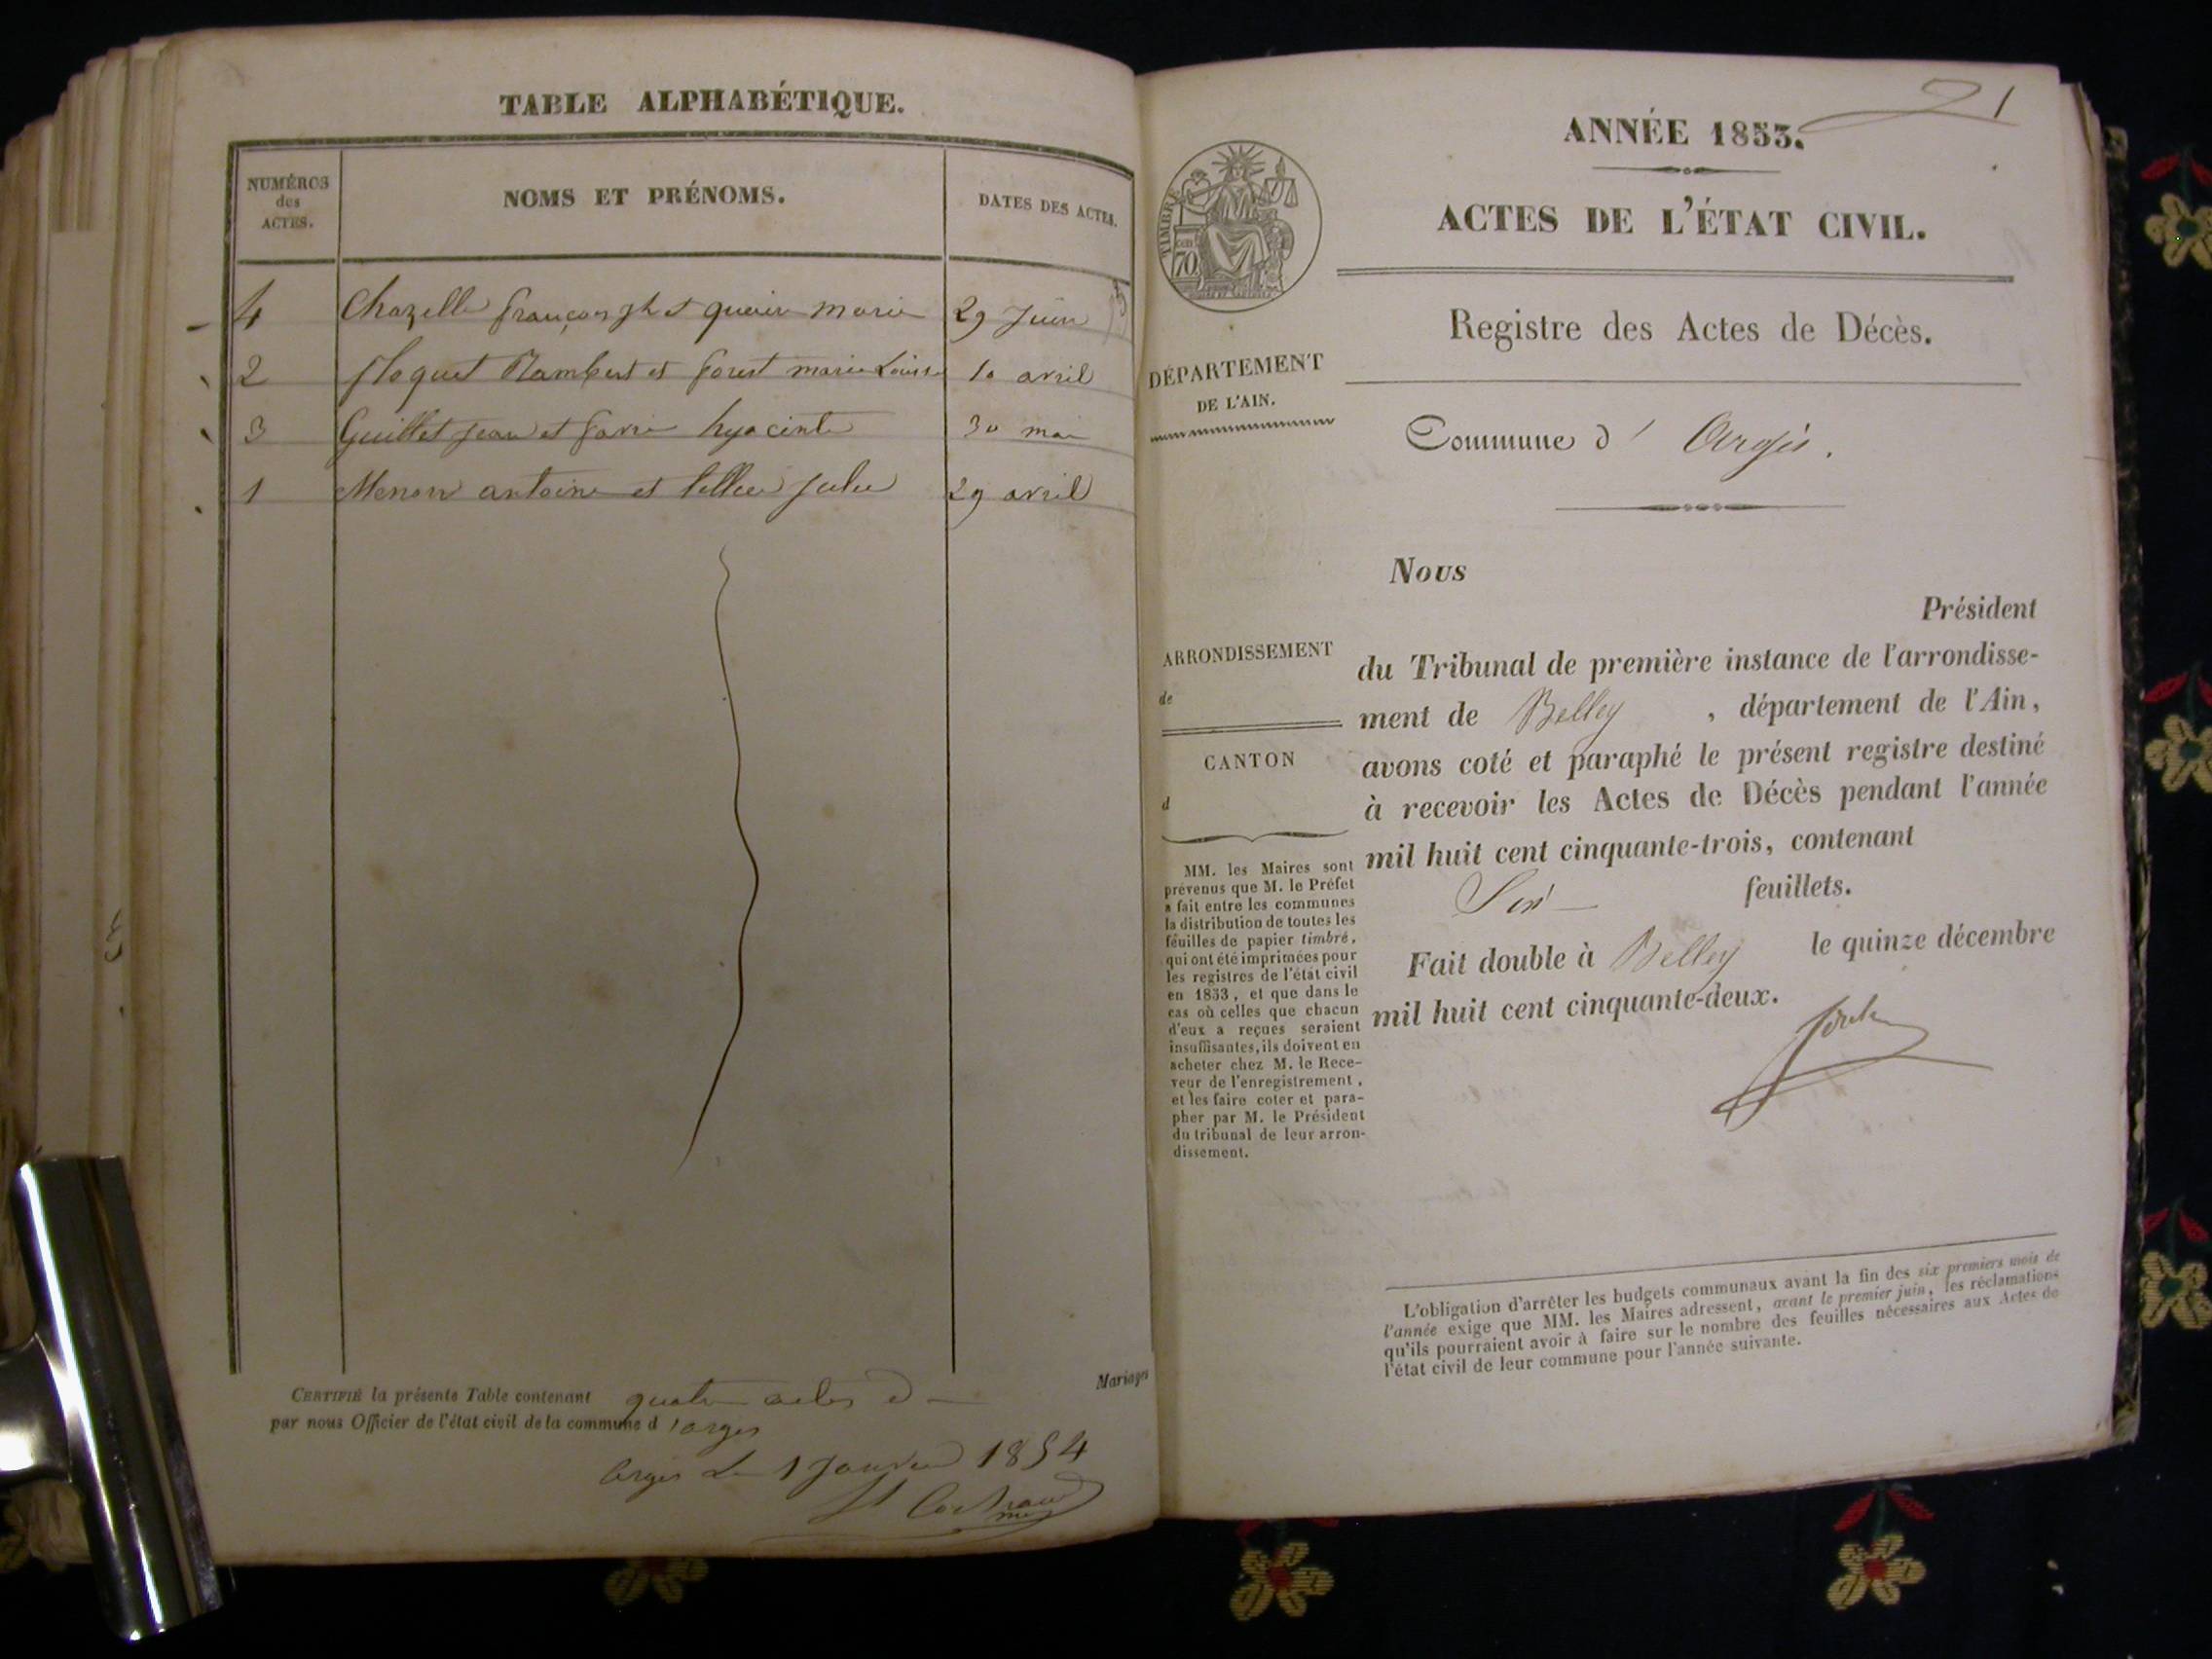 TABLE ALPHABÉTIQUE.
NUMÉROS
des
ACTES.
NOMS ET PRÉNOMS.
DATES DES ACTES.
4 Chazelle françois jh et marie 29 Juin
2 floquet Rambert et forest marie Louise 10 avril
3 Guillet jean et hyacinte 30 mai
1 Menon antoine et julie 29 avril
CERTIFIÉ la présente Table contenant quatre actes d
par nous Officier de l'état civil de la commune d'arges
Mariages
Argis Le 1 Janvier 1854
21
ANNÉE 1853.
ACTES DE L'ÉTAT CIVIL.
TIMBRE
70
Registre des Actes de Décès.
DÉPARTEMENT
DE L'AIN.
Commune d' Argis.
Nous
Président
ARRONDISSEMENT
de
CANTON
d
du Tribunal de première instance de l'arrondisse-
ment de Belley , département de l'Ain,
avons coté et paraphé le présent registre destiné
à recevoir les Actes de Décès pendant l'année
mil huit cent cinquante-trois, contenant
Six feuillets.
Fait double à Belley le quinze décembre
mil huit cent cinquante-deux.
MM. les Maires sont
prévenus que M. le Préfet
a fait entre les communes
la distribution de toutes les
feuilles de papier timbré,
qui ont été imprimées pour
les registres de l'état civil
en 1853, et que dans le
cas où celles que chacun
d'eux a reçues seraient
insuffisantes, ils doivent en
acheter chez M. le Rece-
veur de l'enregistrement,
et les faire coter et para-
pher par M. le Président
du tribunal de leur arron-
dissement.
L'obligation d'arrêter les budgets communaux avant la fin des six premiers mois de
l'année exige que MM. les Maires adressent, avant le premier juin, les réclamations
qu'ils pourraient avoir à faire sur le nombre des feuilles nécessaires aux Actes de
l'état civil de leur commune pour l'année suivante.